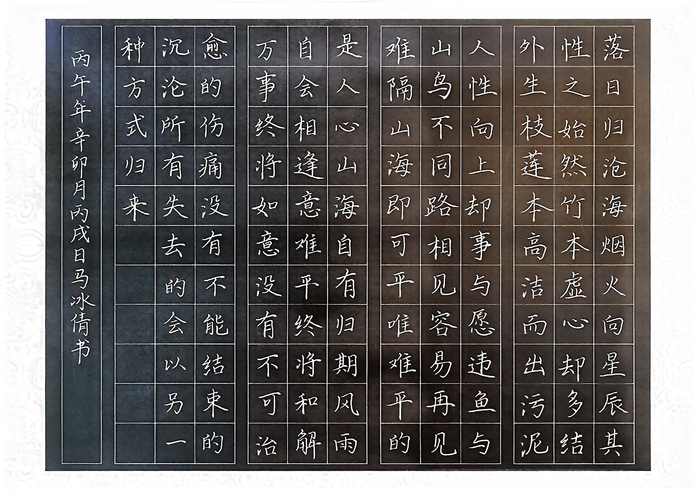 落日归沧海烟火向星辰其
性之始然竹本虚心却多结
外生枝莲本高洁而出污泥
人性向上却事与愿违鱼与
山鸟不同路相见容易再见
难隔山海即可平唯难平的
是人心山海自有归期风雨
自会相逢意难平终将和解
万事终将如意没有不可治
愈的伤痛没有不能结束的
沉沦所有失去的会以另一
种方式归来
丙午年辛卯月丙戌日马冰倩书